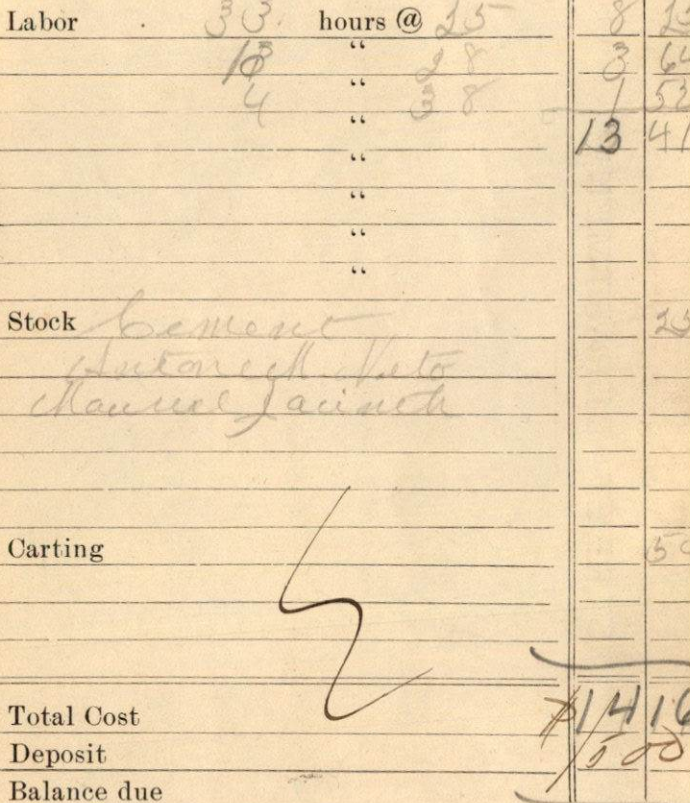 Labor 33 hours @ 25 8 25
13 " 28 3 64
4 " 38 1 52
" 13 41
"
"
"
"
Stock Cement 25
Antone M. Neto
Manuel Jacinth
Carting 50
Total Cost $14 16
Deposit 15 00
Balance due